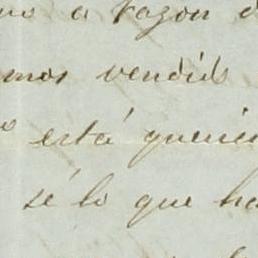 a razon d
mos vendido
está querie
sé lo que ha